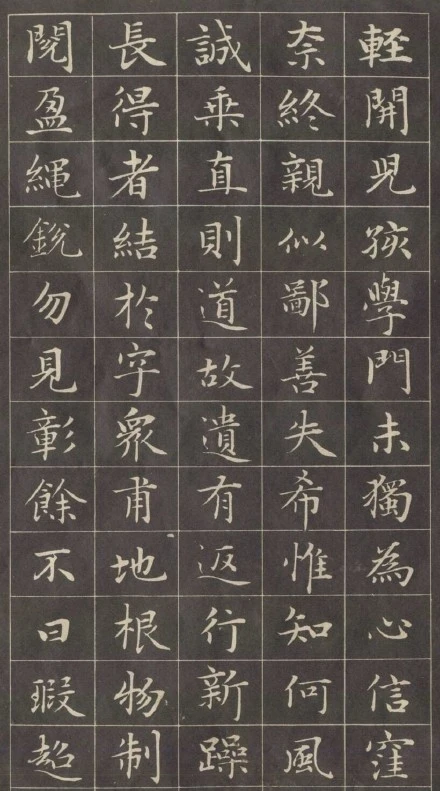 輕開兒孩學門未獨為心信窪
奈終親似鄙善失希惟知何風
誠乗直則道故遺有返行新躁
長得者結於字衆甫地根物制
閱盈繩銳勿見彰餘不曰瑕超